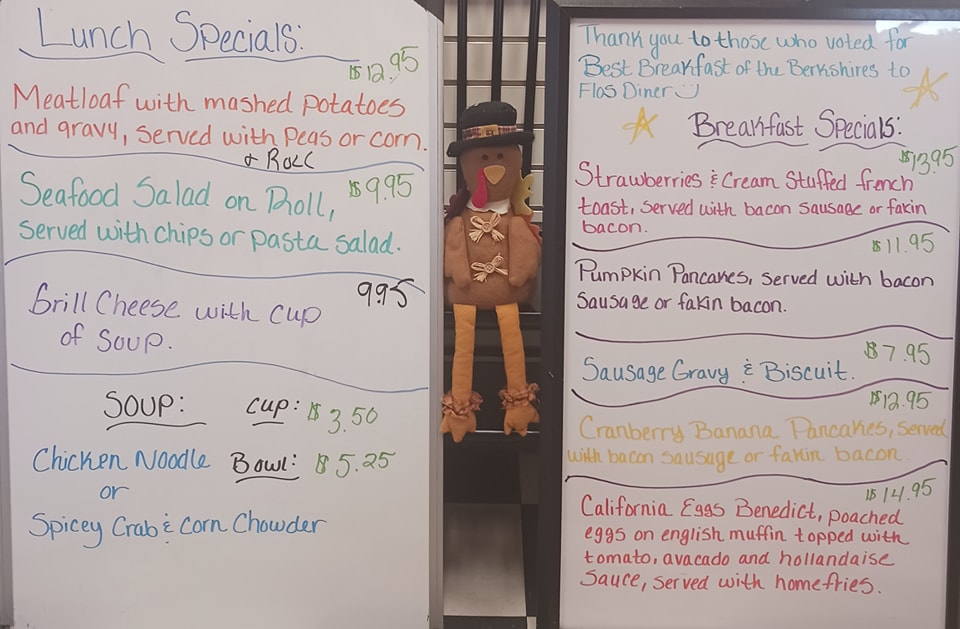 Lunch Specials:
$12.95
Meatloaf with mashed potatoes
and gravy, served with peas or corn.
& Roll
Seafood Salad on Roll, $9.95
served with chips or pasta salad.
9.95
Grill Cheese with cup
of soup.
Soup: Cup: $3.50
Chicken Noodle Bowl: $5.25
or
Spicey Crab & Corn Chowder
Thank you to those who voted for
Best Breakfast of the Berkshires to
Flos Diner
Breakfast Specials:
$13.95
Strawberries & Cream Stuffed french
toast, served with bacon sausage or fakin
bacon.
$11.95
Pumpkin Pancakes, served with bacon
sausage or fakin bacon.
$7.95
Sausage Gravy & Biscuit.
$12.95
Cranberry Banana Pancakes, served
with bacon sausage or fakin bacon.
$14.95
California Eggs Benedict, poached
eggs on english muffin topped with
tomato, avacado and hollandaise
sauce, served with homefries.